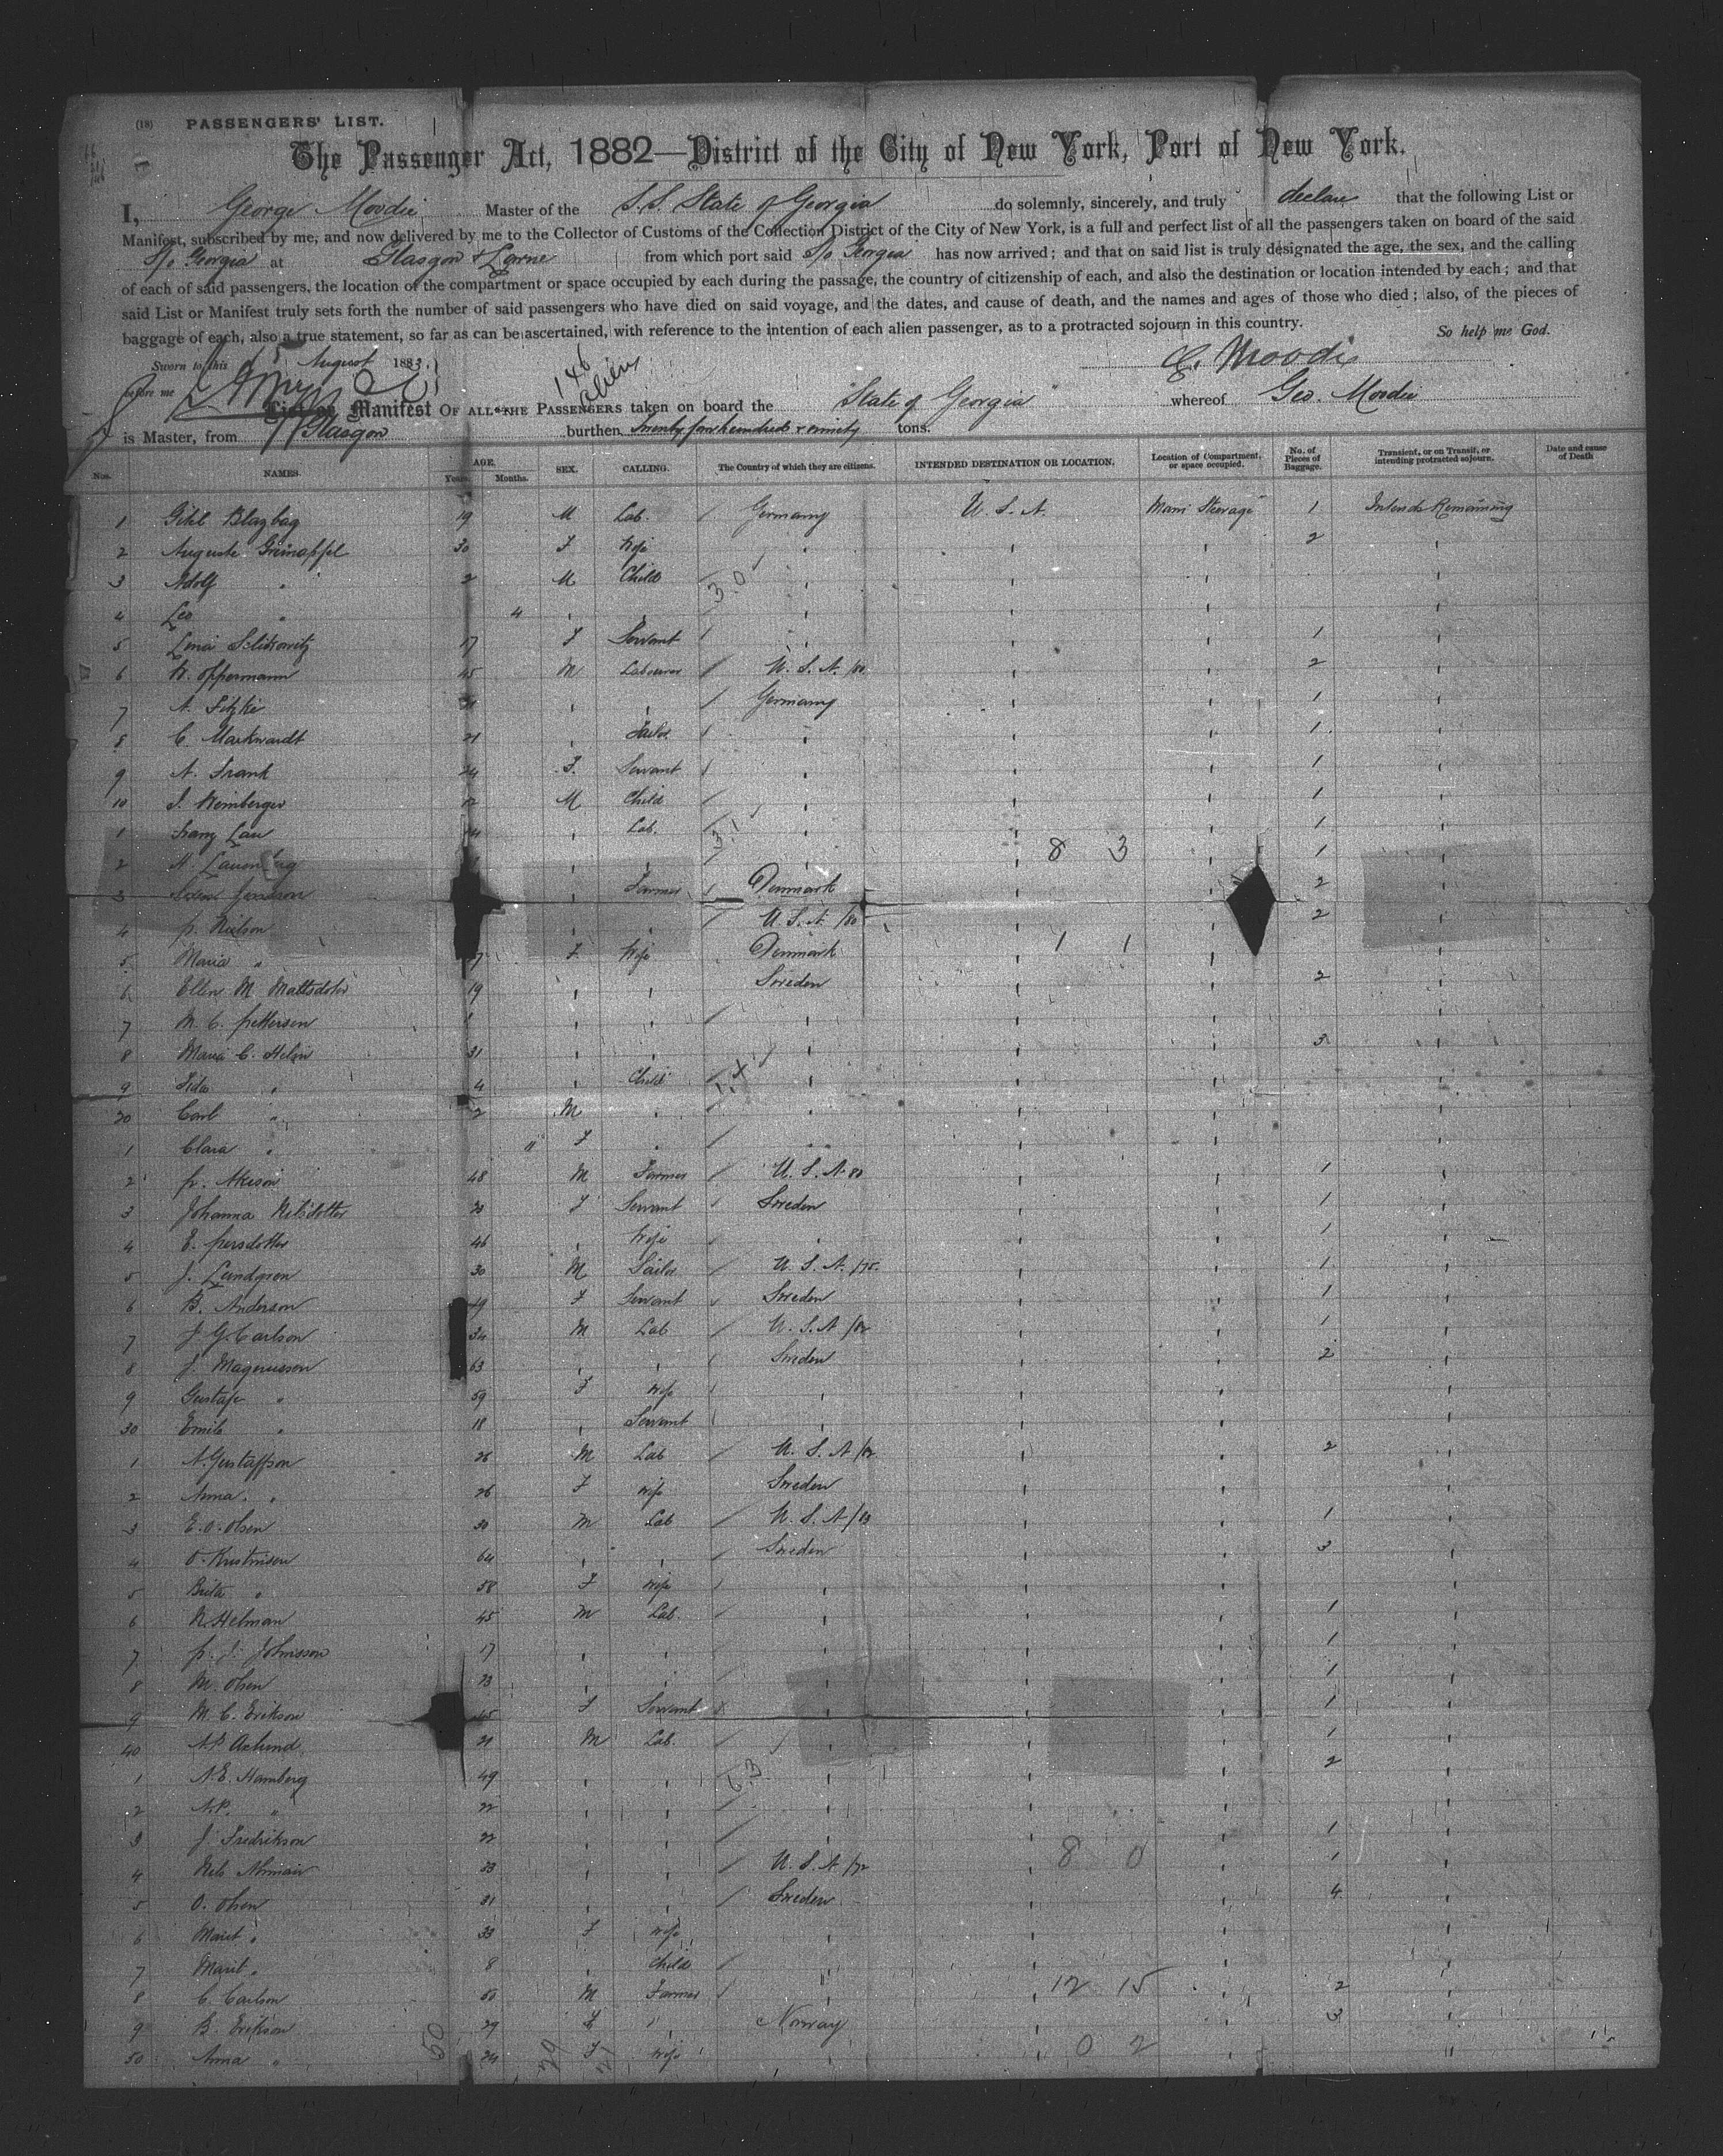 (18) PASSENGERS' LIST.
The Passenger Act, 1882—District of the City of New York, Port of New York.
I, George Moodie Master of the S.S. State of Georgia do solemnly, sincerely, and truly declare that the following List or
Manifest, subscribed by me, and now delivered by me to the Collector of Customs of the Collection District of the City of New York, is a full and perfect list of all the passengers taken on board of the said
S/o Georgia at Glasgow & Larne from which port said S/o Georgia has now arrived; and that on said list is truly designated the age, the sex, and the calling
of each of said passengers, the location of the compartment or space occupied by each during the passage, the country of citizenship of each, and also the destination or location intended by each; and that
said List or Manifest truly sets forth the number of said passengers who have died on said voyage, and the dates, and cause of death, and the names and ages of those who died; also, of the pieces of
baggage of each, also a true statement, so far as can be ascertained, with reference to the intention of each alien passenger, as to a protracted sojourn in this country. So help me God.
Sworn to this August 1883. G. Moodie
before me 146 Aliens
List or Manifest OF ALL THE PASSENGERS taken on board the "State of Georgia" whereof Geo. Moodie
is Master, from Glasgow burthen tons.
Nos. NAMES. AGE. Years. Months. SEX. CALLING. The Country of which they are citizens. INTENDED DESTINATION OR LOCATION. Location of Compartment, or space occupied. No. of Pieces of Baggage. Transient, or on Transit, or intending protracted sojourn. Date and cause of Death
1 Gitel Blazbag 19 M Lab. Germany U.S.A. Main Steerage 1 Intends Remaining
2 Auguste Grünapfel 30 F Wife " " " 2 "
3 Adolf " 2 M Child " " " "
4 Leo " 4 " " " " " "
5 17 F Servant " " " 1 "
6 W. Oppermann 45 M Labourer U.S.A. /80 " " 2 "
7 A. Fitzke " " Germany " " 1 "
8 C. Markwardt 21 " Tailor " " " 1 "
9 A. Frank 24 F. Servant " " " 1 "
10 S. Weinberger 12 M Child " " " 1 "
1 Franz Lau " Lab. " " " 1 "
2 " " " " 8 3 " 1
3 " Farmer Denmark " " 2
4 p. Nielson " " U.S.A. /80 " " 2
5 Maria " F Wife Denmark 1 1 "
6 Ellen M Mattsdoter 19 " " Sweden " " 2 "
7 M. C. Pettersen " " " " " "
8 Maria C. Helin 31 " " " " " 3 "
9 " 4 " Child " " " "
20 Carl " 2 M " " " " "
1 Clara " 11 F " " " " "
2 p. Akeson 48 M Farmer U.S.A. 80 " " 1 "
3 Johanna Nilsdotter 23 F Servant Sweden " " 1 "
4 E. Persdotter 46 " Wife " " " 1 "
5 J. Lundgren 30 M Sailor U.S.A. /75. " " 1 "
6 B. Anderson 19 F Servant Sweden " " 1 "
7 J. G. Carlson 34 M Lab U.S.A /82 " " 1 "
8 J. Magnusson 63 " " Sweden " " 2 "
9 Gustafe " 59 F Wife " " " "
30 Emile " 18 " Servant " " " "
1 A. Gustaffson 26 M Lab U.S.A /82 " " 2 "
2 Anna " 26 F Wife Sweden " " "
3 E. O. Olsen 30 M Lab U.S.A/83 " " 1 "
4 O. 64 " " Sweden " " 3 "
5 Brita " 58 F Wife " " " "
6 N. Helman 45 M Lab " " " 1 "
7 p. J. Johnsson 17 " " " " " 1 "
8 M. Olsen 23 " " " " " 1 "
9 M. C. Erikson 45 F Servant " " " 1 "
40 A.P. Axlund 21 M Lab. " " " 1 "
1 N.E. Hamberg 49 " " " " " 2 "
2 A.P. " 22 " " " " " "
3 J. Fredrikson 22 " " " " " 1 "
4 Nels 23 " " U.S.A /72 8 0 " 1 "
5 O. Olsen 31 " " Sweden " " 4 "
6 Marit " 33 F Wife " " " "
7 Marit " 8 " Child " " " "
8 C. Carlson M Farmer " 12 15 " 2 "
9 B. Erikson 29 " Norway " " 3 "
50 Anna " 24 F Wife " 0 2 " "
50